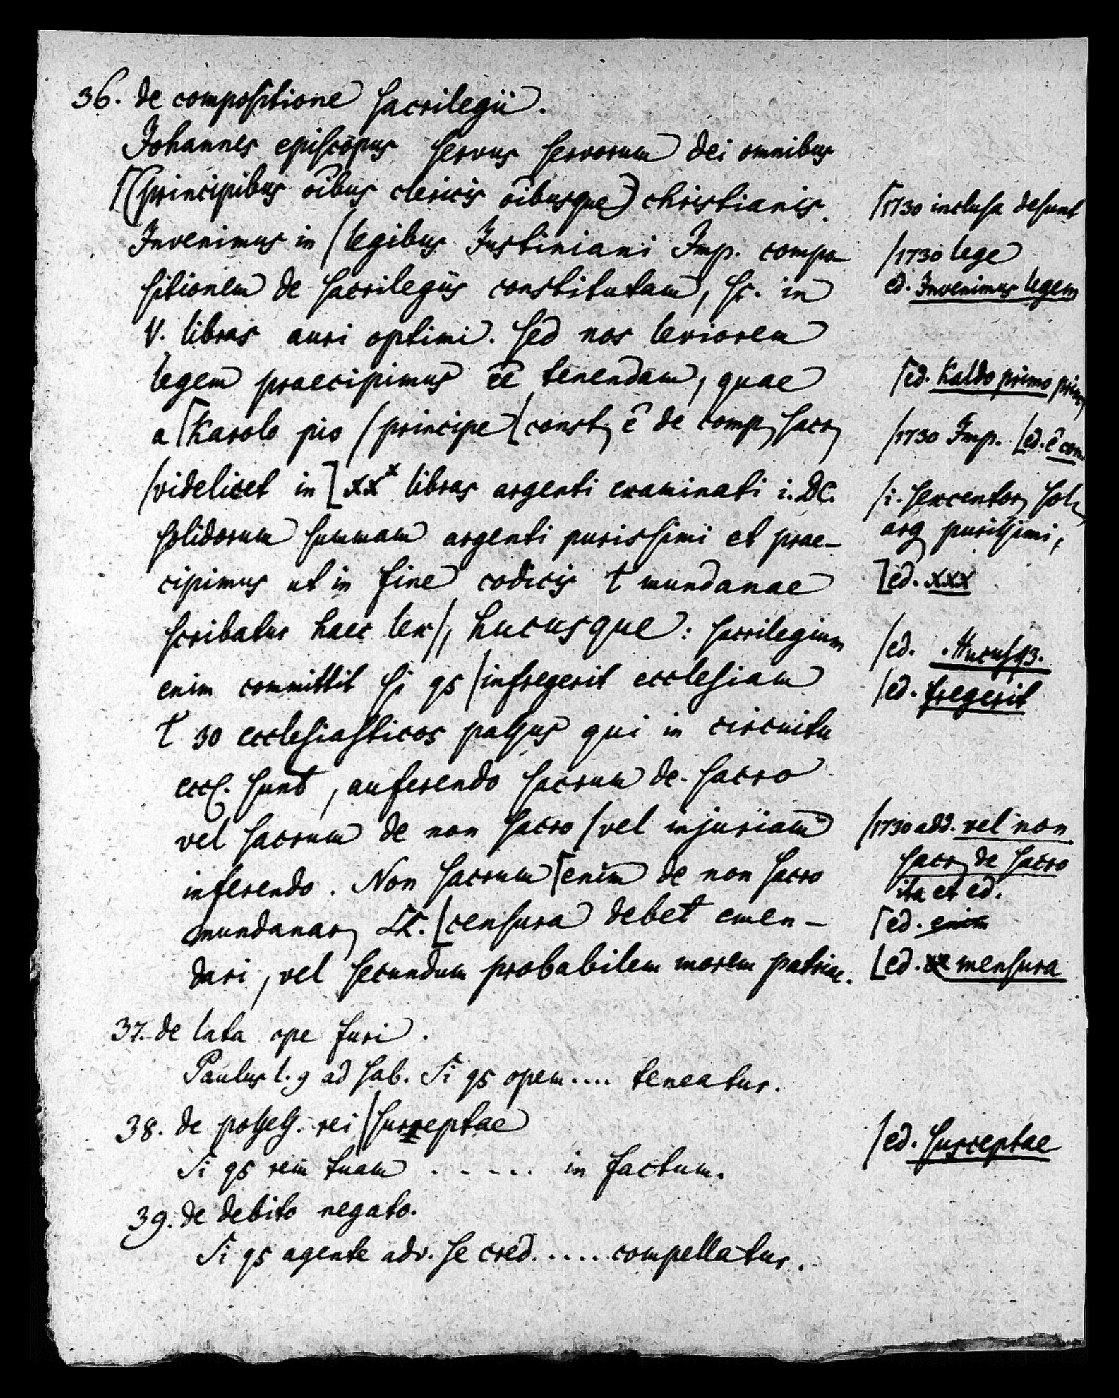 36. de compositione sacrilegii.
Johannes episcopus servus servorum dei omnibus
⌈(principibus oībus clericis oībusque) christianis.
⌈1730 inclusa desunt
Invenimus in /legibus Justiniani Imp. compo-
/1730 lege
sitionem de sacrilegiis constitutam, sc. in
ed. Invenimus legem
V. libras auri optimi. Sed nos leviorem
legem praecipimus ēē tenendam, quae
⌈ed. Kaldo primo
a ⌈Karolo pio /principe ⌊const, ē de comp, sacr,
/1730 Imp. ⌊ed. ē com
/videlicet in ⌉xxˣ libras argenti examinati i. DC.
/i. sexcentor, sol,
solidorum summam argenti purissimi et prae-
arg, purissimi,
cipimus ut in fine codicis t mundanae
⌉ed. xxx
scribatur haec lex/, hucusque: sacrilegium
/ed. . Hucusq3.
enim committit si qs /infregerit ecclesiam
/ed. fregerit
t 30 ecclesiasticos passus qui in circuitu
eccl. sunt, auferendo sacrum de sacro
vel sacrum de non sacro /vel injuriam
/1730 add. vel non
inferendo. Non sacrum ⌈enim de non sacro
sacr, de sacro
ita et ed.
mundanar, LL. ⌊censura debet emen-
⌈ed. enim
dari, vel secundum probabilem morem patriae.
⌊ed. mensura
37. de lata ope furi.
Paulus l. 9 ad Sab. Si qs opem.... teneatur.
38. de possess. rei /susceptae
/ed. susceptae
Si qs rem tuam ..... in factum.
39. de debito negato.
Si qs agente adv. se cred. ..... compellatur.